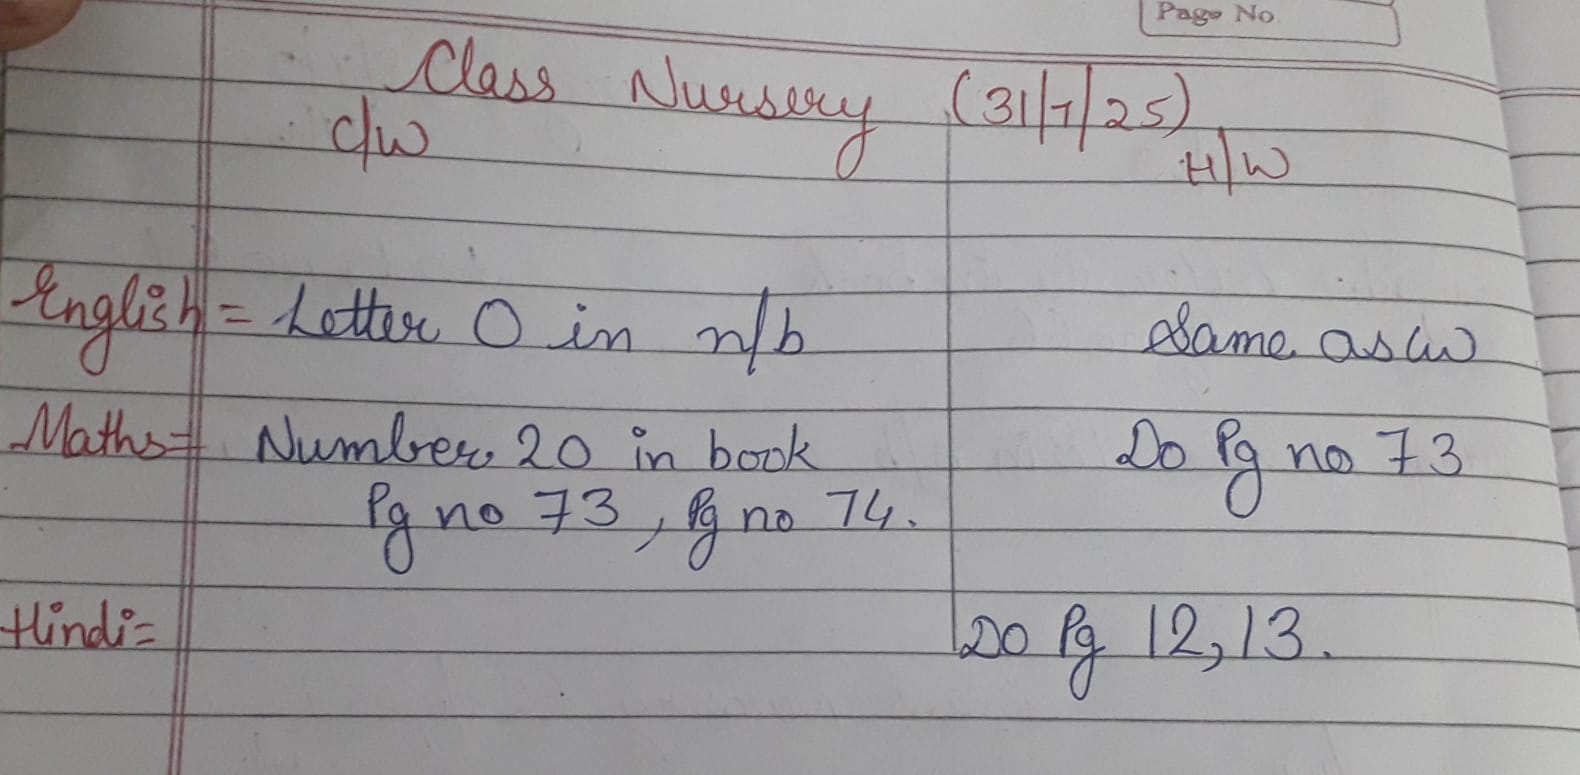 Page No.
Class Nursery (31/7/25)
C/W H/W
English = Letter O in n/b Same as cw
Maths = Number 20 in book Do Pg no 73
Pg no 73, Pg no 74.
Hindi = Do Pg 12, 13.